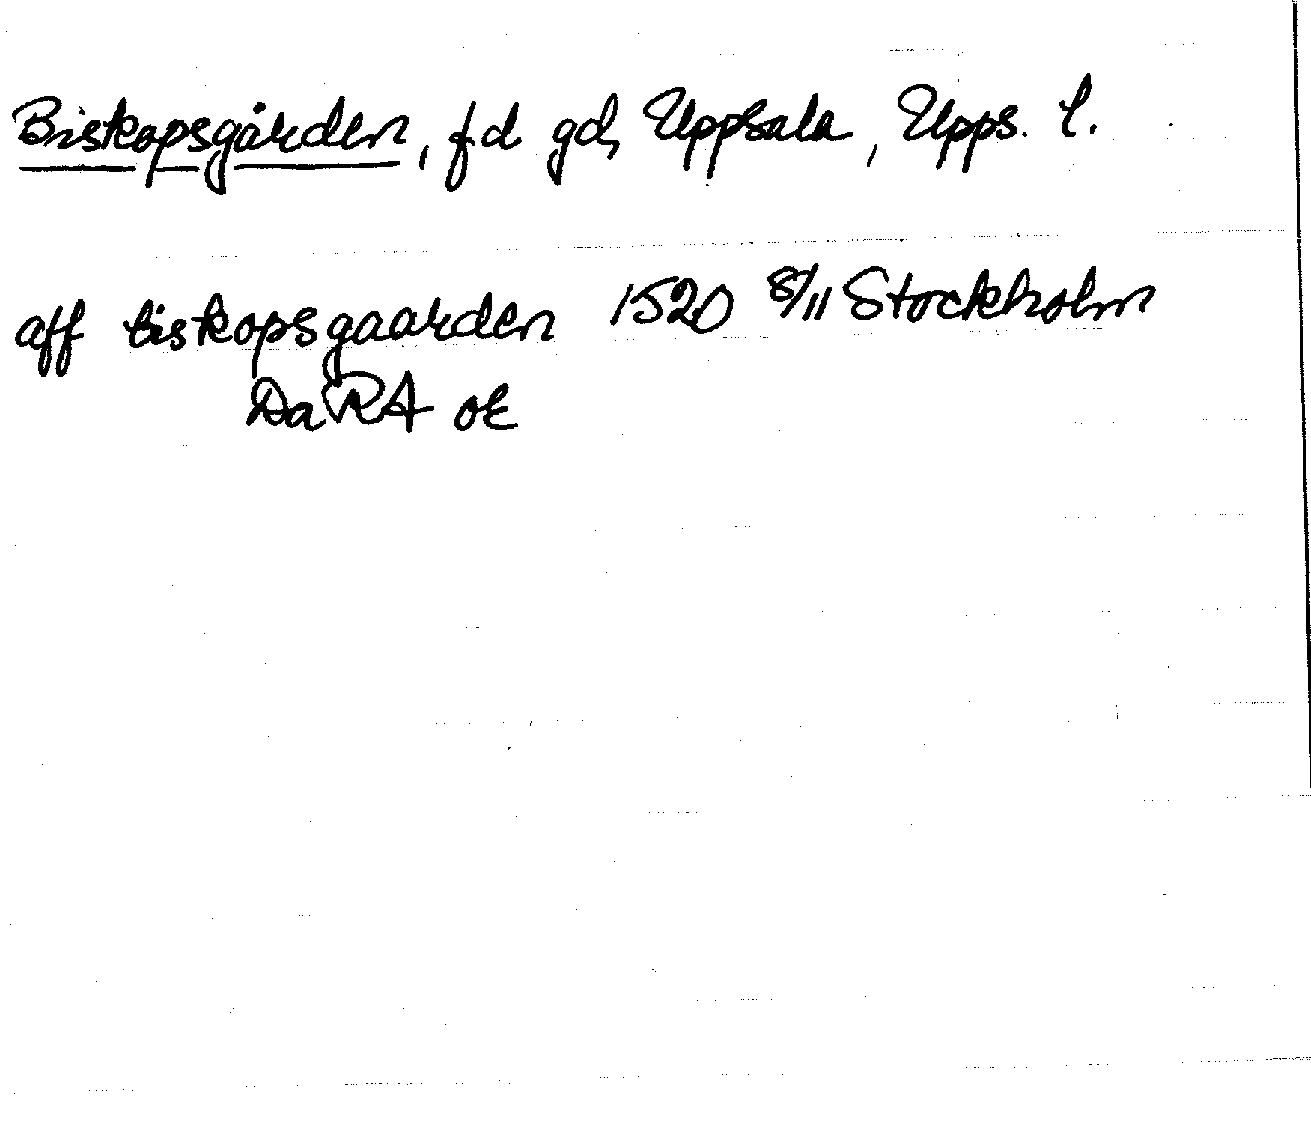 Biskopsgården, fd gd, Uppsala, Upps. l.
aff biskopsgaarden 1520 8/11 Stockholm
DaRA ok